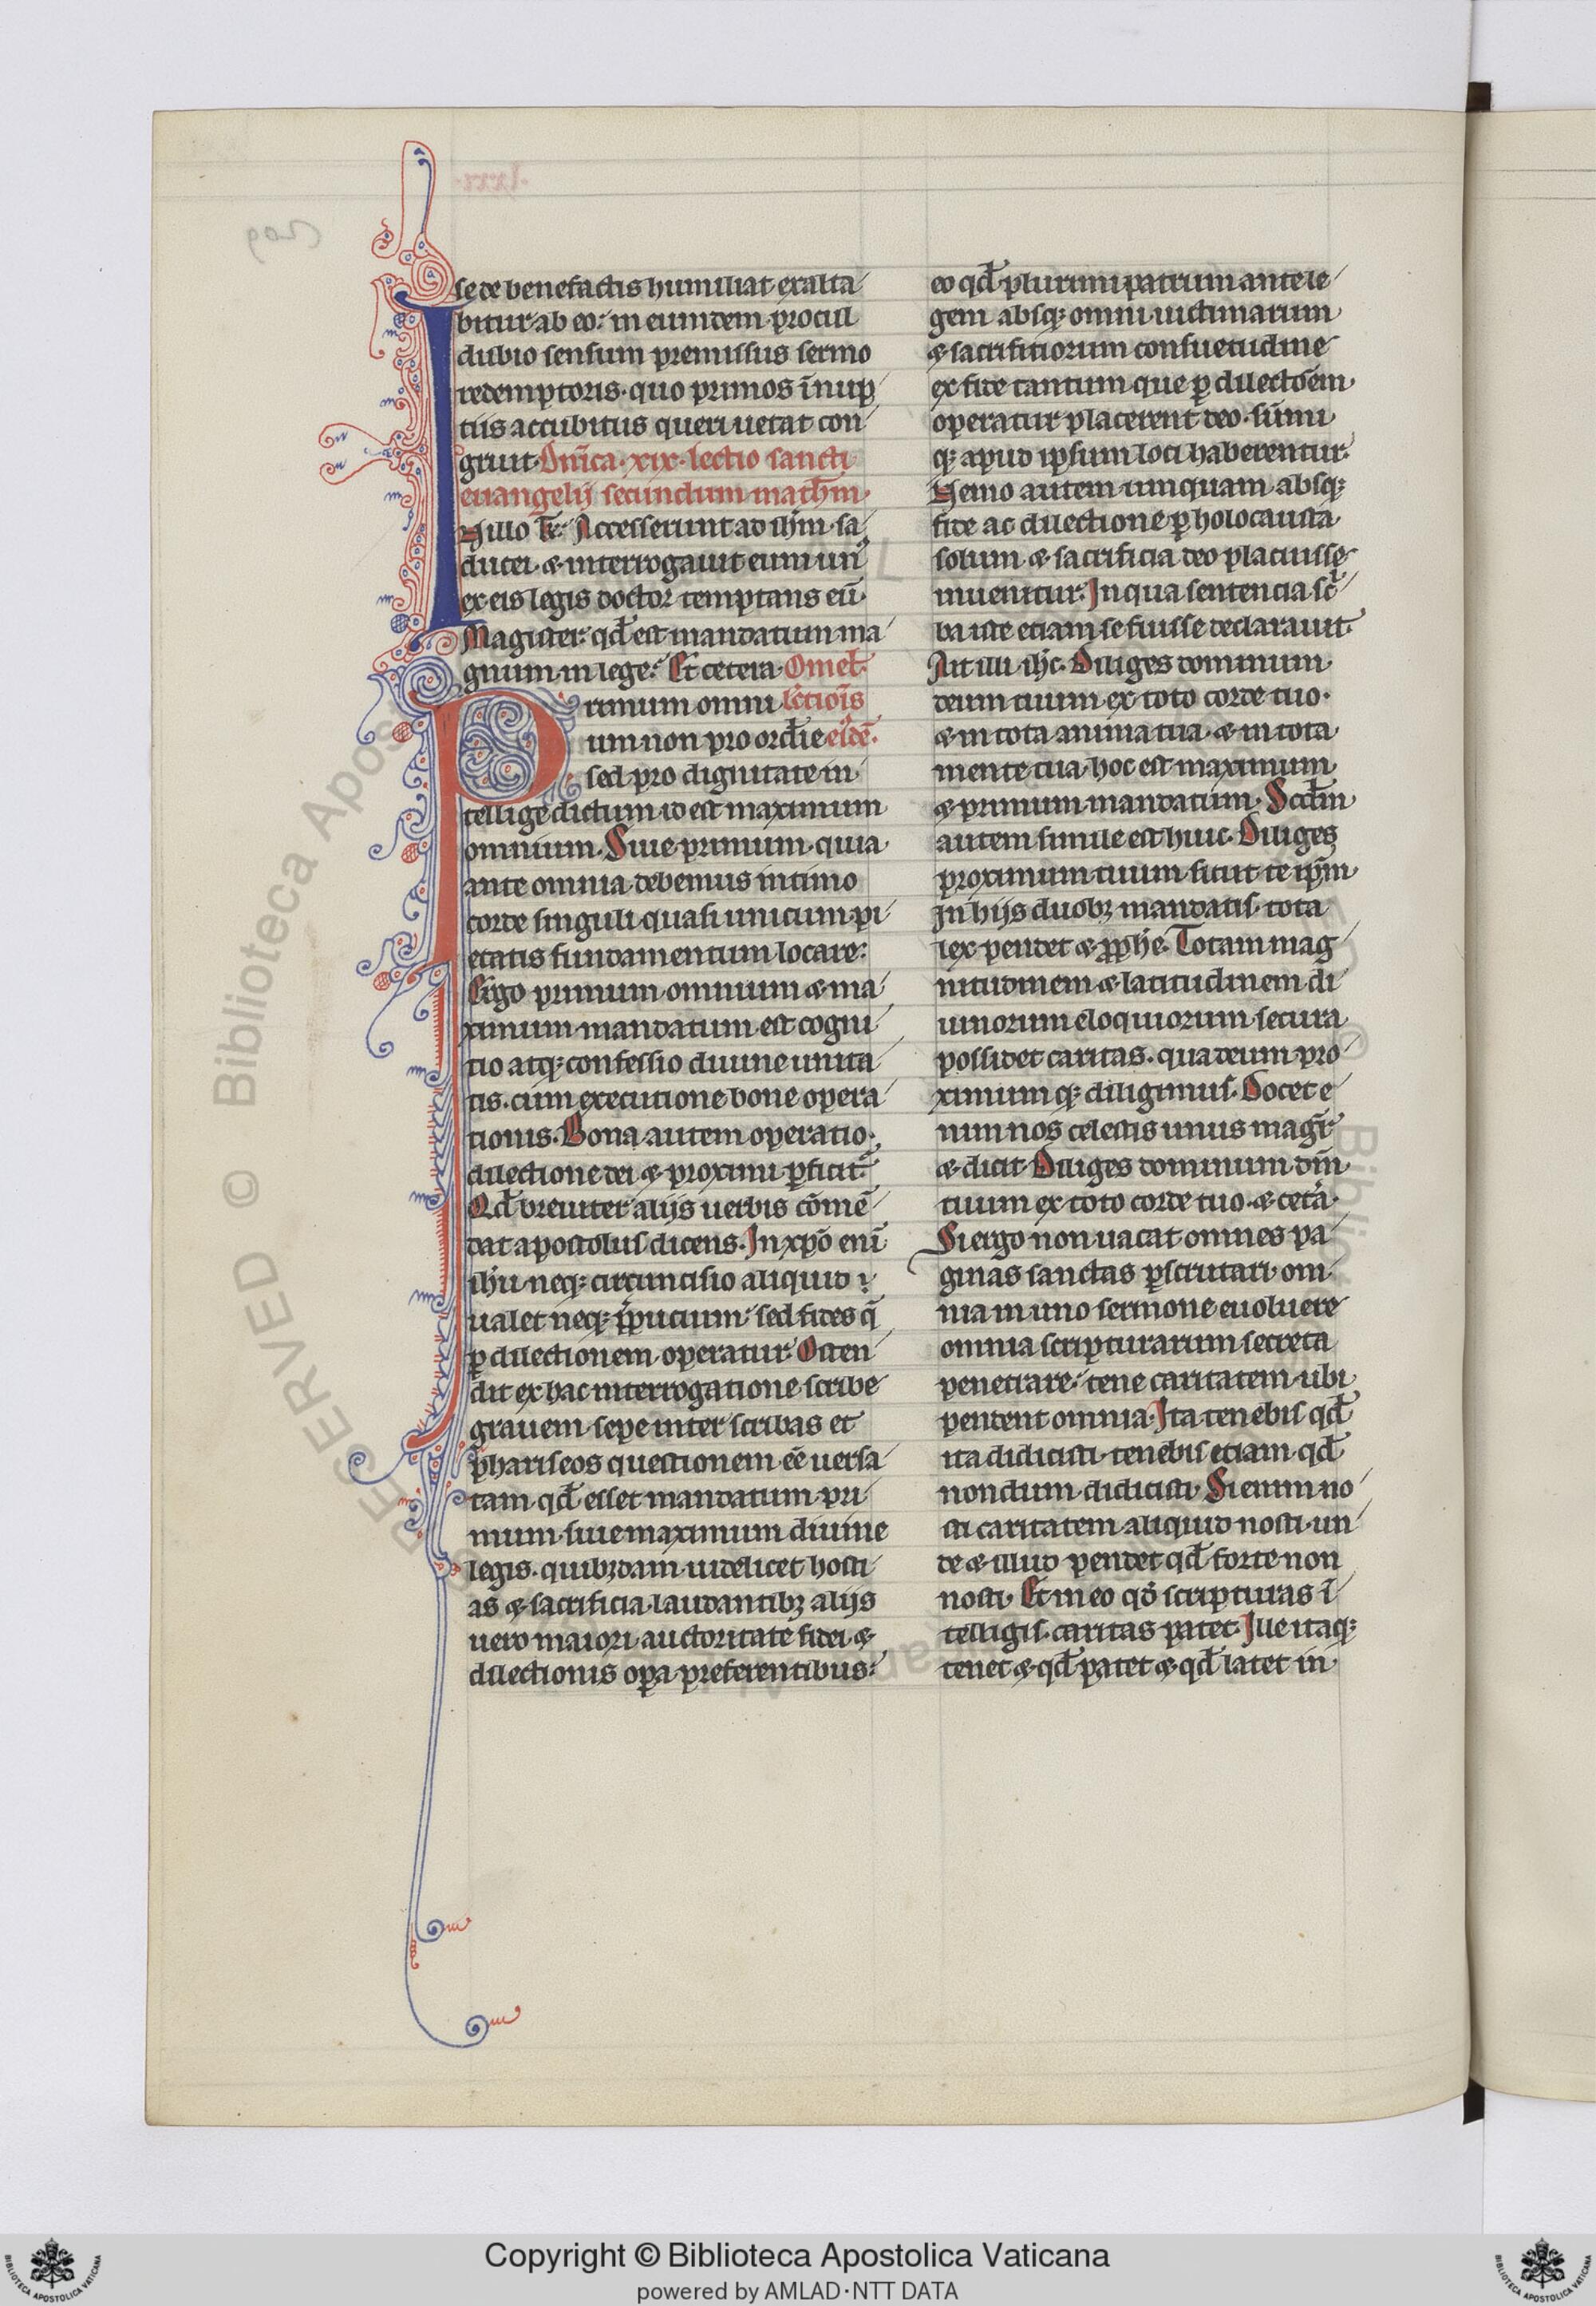 se de benefactis humiliat exalta
bitur ab eo: in eumdem procul
dubio sensum premissus sermo
redemptoris. quo primos i̅ nup
tiis accubitus queri uetat con
gruit. Dn̅ica .xix. lectio sancti
euangelij secundum math̅m.
IN illo t̅r. Accesserunt ad ih̅m sa
ducei. & interrogauit eum un9
ex eis legis doctor temptans eu̅.
Magister. qd̅ est mandatum ma
gnum in lege? Et cetera. Omel.
Primum omni lectio̅is
um non pro ordi̅e eide̅.
sed pro dignitate in
tellige dictum id est maximum
omnium. Siue primum. quia
ante omnia debemus intimo
corde singuli quasi unicum pi
etatis fundamentum locare:
Ergo primum omnium & ma
ximum mandatum est cogni
tio atq; confessio diuine unita
tis. cum executione bone opera
tionis. Bona autem operatio
dilectione dei & proximi p̅ficit᷑.
Qd̅ breuiter alijs uerbis co̅me̅
dat apostolus dicens. In xp̅o eni̅
ih̅u neq; circuncisio aliquid
ualet neq; p̅pucium. sed fides q̅
ꝑ dilectionem operatur. Osten
dit ex hac interrogatione scribe
grauem sepe inter scribas et
phariseos questionem ee̅ uersa
tam qd̅ esset mandatum pri
mum. siue maximum diuine
legis. quibz̛dam uidelicet hosti
as & sacrificia laudantibz alijs
uero maiori auctoritate fidei &
dilectionis oꝑa preferentibus:
eo qd̅ plurimi patrum ante le
gem absq; omni uictimarum
& sacrifitiorum consuetudine
ex fide tantum que ꝑ dilectio̅em
operatur placerent deo. su̅mi
q; apud ipsum loci haberentur.
Nemo autem umquam absq;
fide ac dilectione ꝑ holocausta
solum & sacrificia deo placuisse
inuenitur. In qua sentencia sc̅
ba iste etiam se fuisse declarauit.
Ait illi ih̅c. Diliges dominum
deum tuum ex toto corde tuo.
& in tota anima tua. & in tota
mente tua. hoc est maximum
& primum mandatum. Scd̅m
autem simile est huic. Diliges
proximum tuum sicut te ip̅m
In hijs duobz mandatis. tota
lex pendet & prophe̅. Totam mag
nitudinem & latitudinem di
uinorum eloquiorum secura
possidet caritas. qua deum pro
ximumq; diligimus. Docet e
nim nos celestis unus magr̅
& dicit. Diliges dominum dm̅
tuum ex toto corde tuo. & cetera.
Si ergo non uacat omnes pa
ginas sanctas ꝑscrutari. om
nia in uno sermone euoluere
omnia scripturarum secreta
penetrare. tene caritatem ubi
pendent omnia. Ita tenebis qd̅
ita didicisti. tenebis etiam. qd̅
nondum didicisti. Si enim no
sti caritatem aliquid nosti un
de & illud pendet qd̅ forte non
nosti. Et in eo qd̅ scripturas i̅
telligis. caritas patet. Ille itaq;
tenet & qd̅ patet & qd̅ latet in
Copyright © Biblioteca Apostolica Vaticana
powered by AMLAD·NTT DATA